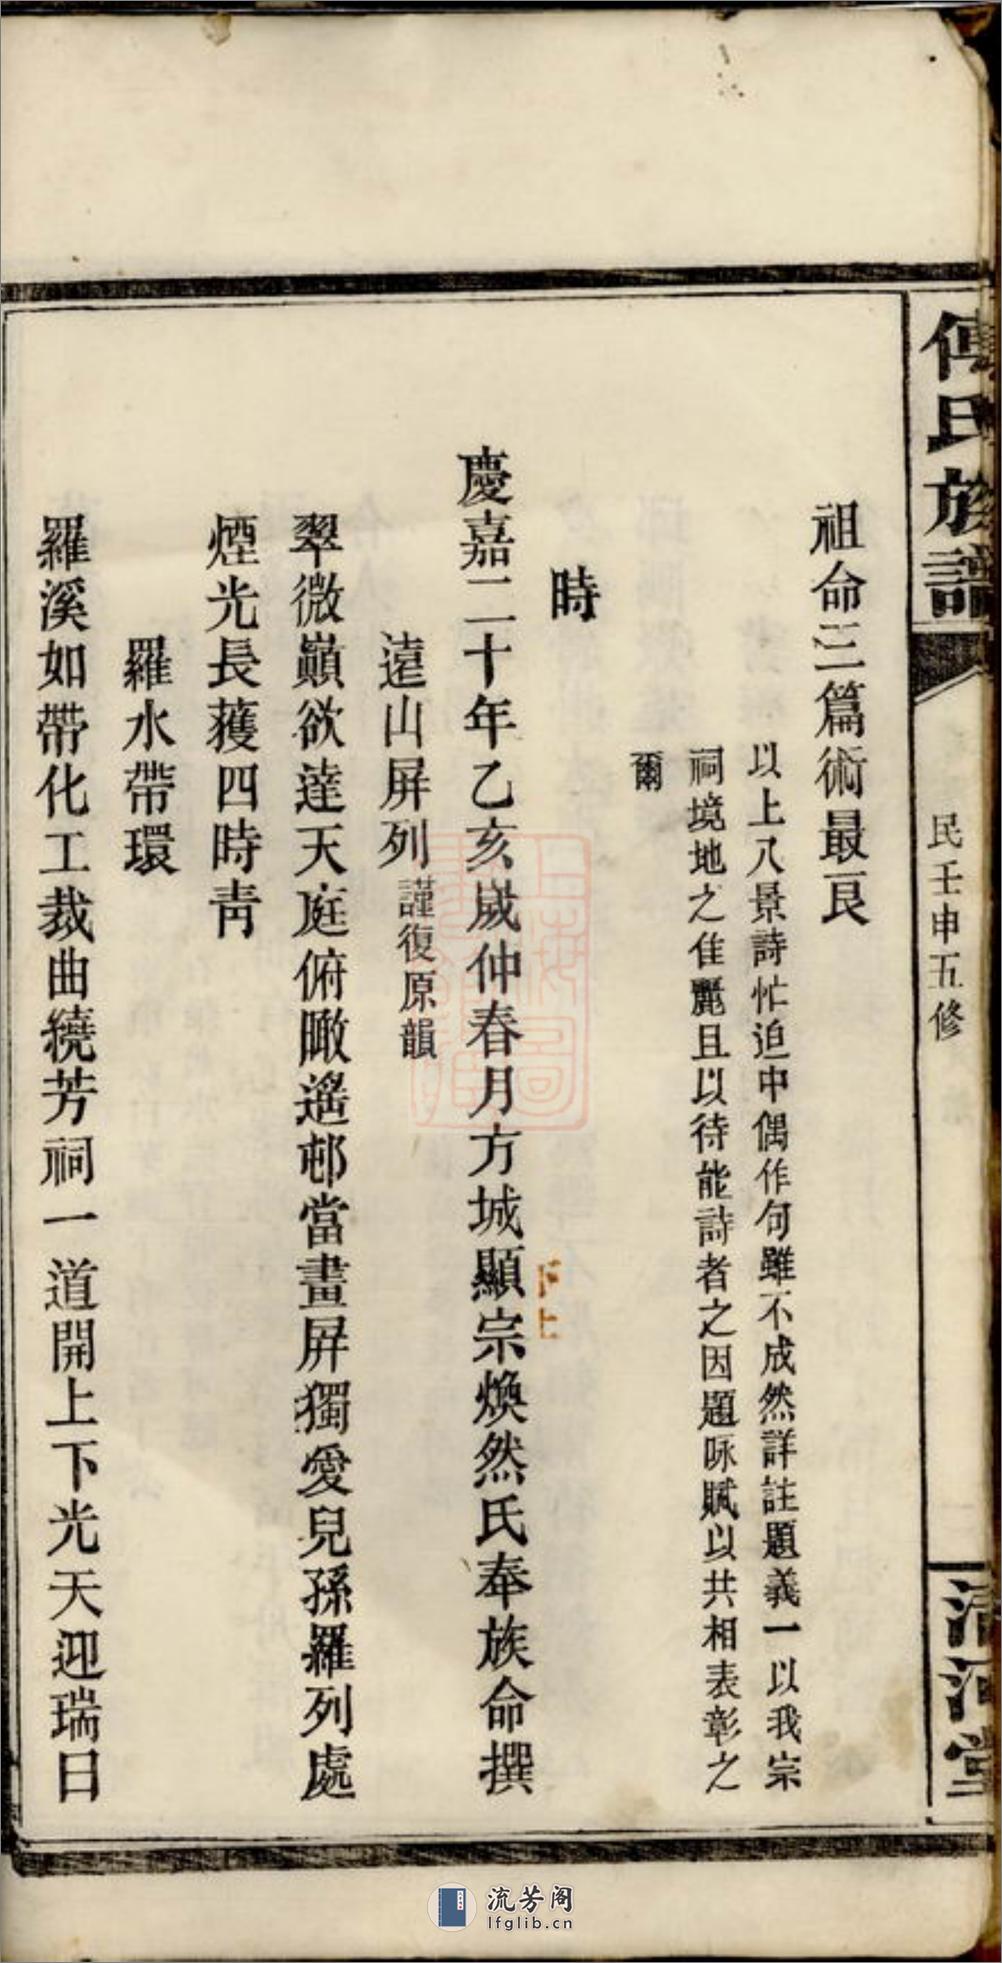 傅氏族譜
民壬申五修
清河堂
祖命三篇術最良
以上八景詩忙迫中偶作句雖不成然詳註題義一以我宗
祠境地之佳麗且以待能詩者之因題咏賦以共相表彰之
爾
時
慶嘉二十年乙亥嵗仲春月方城顯宗煥然氏奉族命撰
下上
遠山屏列謹復原韻
翠微巔欲達天庭俯瞰遙邨當畫屛獨愛兒孫羅列處
煙光長蒦四時靑
羅水帶環
羅溪如帶化工裁曲繞芳祠一道開上下光天迎瑞日
流芳阁
lfglib.cn